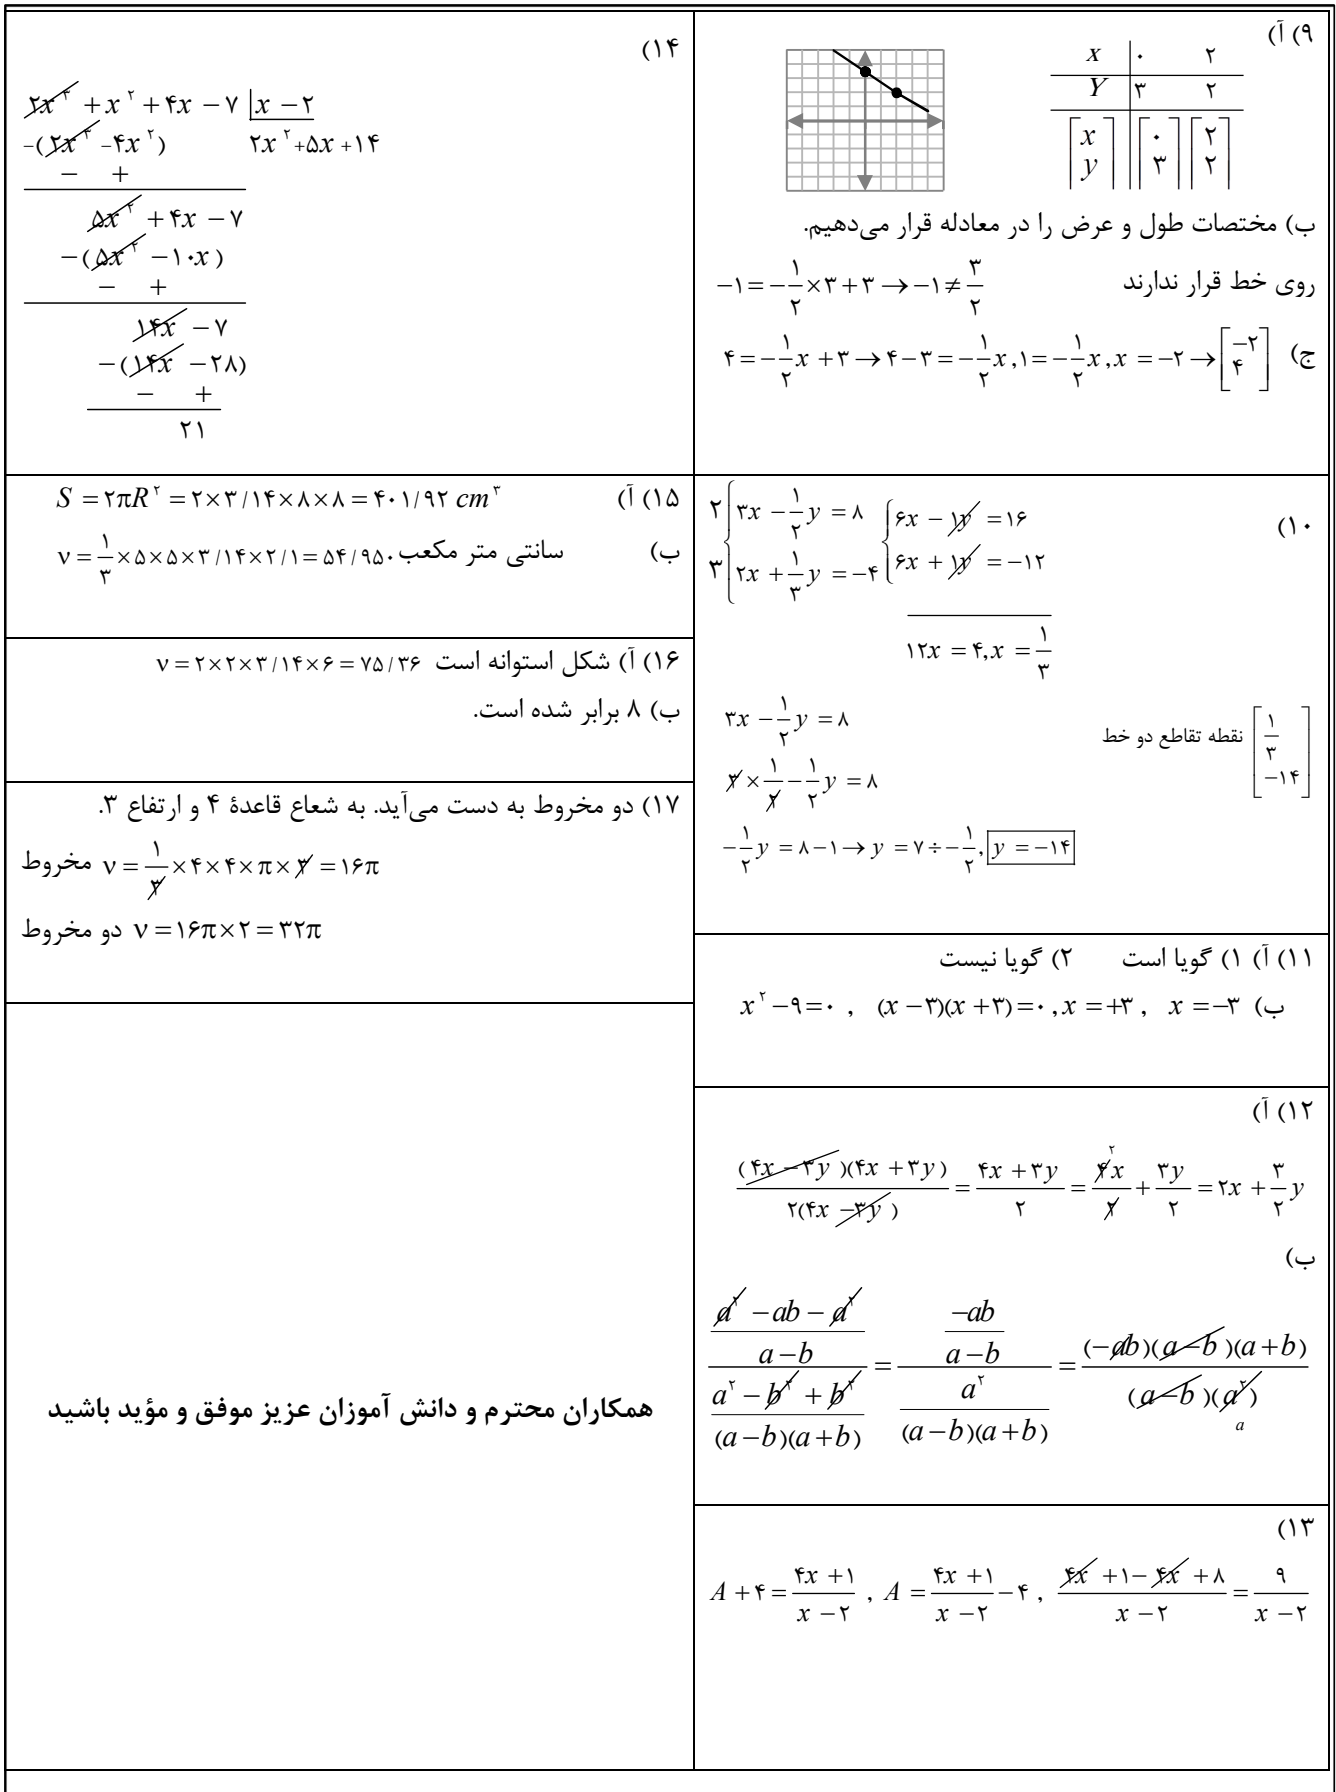 ۹) آ)
x ۰ ۲
Y ۳ ۲
[x y] [۰ ۳] [۲ ۲]
ب) مختصات طول و عرض را در معادله قرار می‌دهیم.
−۱ = −۱/۲ × ۳ + ۳ → −۱ ≠ ۳/۲ روی خط قرار ندارند
ج) ۴ = −۱/۲ x + ۳ → ۴ − ۳ = −۱/۲ x , ۱ = −۱/۲ x , x = −۲ → [−۲ ۴]
۱۰)
۲ {۳x − ۱/۲ y = ۸ {۶x − ۱y = ۱۶
۳ {۲x + ۱/۳ y = −۴ {۶x + ۱y = −۱۲
۱۲x = ۴, x = ۱/۳
۳x − ۱/۲ y = ۸
نقطه تقاطع دو خط [۱/۳ −۱۴]
۳ × ۱/۳ − ۱/۲ y = ۸
−۱/۲ y = ۸ − ۱ → y = ۷ ÷ −۱/۲, y = −۱۴
۱۱) آ) ۱) گویا است ۲) گویا نیست
ب) x² − ۹ = ۰ , (x − ۳)(x + ۳) = ۰, x = +۳ , x = −۳
۱۲) آ)
(۴x − ۳y)(۴x + ۳y) / ۲(۴x − ۳y) = (۴x + ۳y)/۲ = ۴x/۲ + ۳y/۲ = ۲x + ۳/۲ y
ب)
((a² − ab − a²)/(a − b)) / ((a² − b² + b²)/((a − b)(a + b))) = (−ab/(a − b)) / (a²/((a − b)(a + b))) = (−ab)(a − b)(a + b) / (a − b)(a²) a
۱۳)
A + ۴ = (۴x + ۱)/(x − ۲) , A = (۴x + ۱)/(x − ۲) − ۴ , (۴x + ۱ − ۴x + ۸)/(x − ۲) = ۹/(x − ۲)
۱۴)
۲x³ + x² + ۴x − ۷ | x − ۲
−(۲x³ − ۴x²) ۲x² + ۵x + ۱۴
− +
۵x² + ۴x − ۷
−(۵x² − ۱۰x)
− +
۱۴x − ۷
−(۱۴x − ۲۸)
− +
۲۱
۱۵) آ) S = ۲πR² = ۲ × ۳/۱۴ × ۸ × ۸ = ۴۰۱/۹۲ cm³
ب) v = ۱/۳ × ۵ × ۵ × ۳/۱۴ × ۲/۱ = ۵۴/۹۵۰ سانتی متر مکعب
۱۶) آ) شکل استوانه است v = ۲ × ۲ × ۳/۱۴ × ۶ = ۷۵/۳۶
ب) ۸ برابر شده است.
۱۷) دو مخروط به دست می‌آید. به شعاع قاعدهٔ ۴ و ارتفاع ۳.
مخروط v = ۱/۳ × ۴ × ۴ × π × ۳ = ۱۶π
دو مخروط v = ۱۶π × ۲ = ۳۲π
همکاران محترم و دانش آموزان عزیز موفق و مؤید باشید